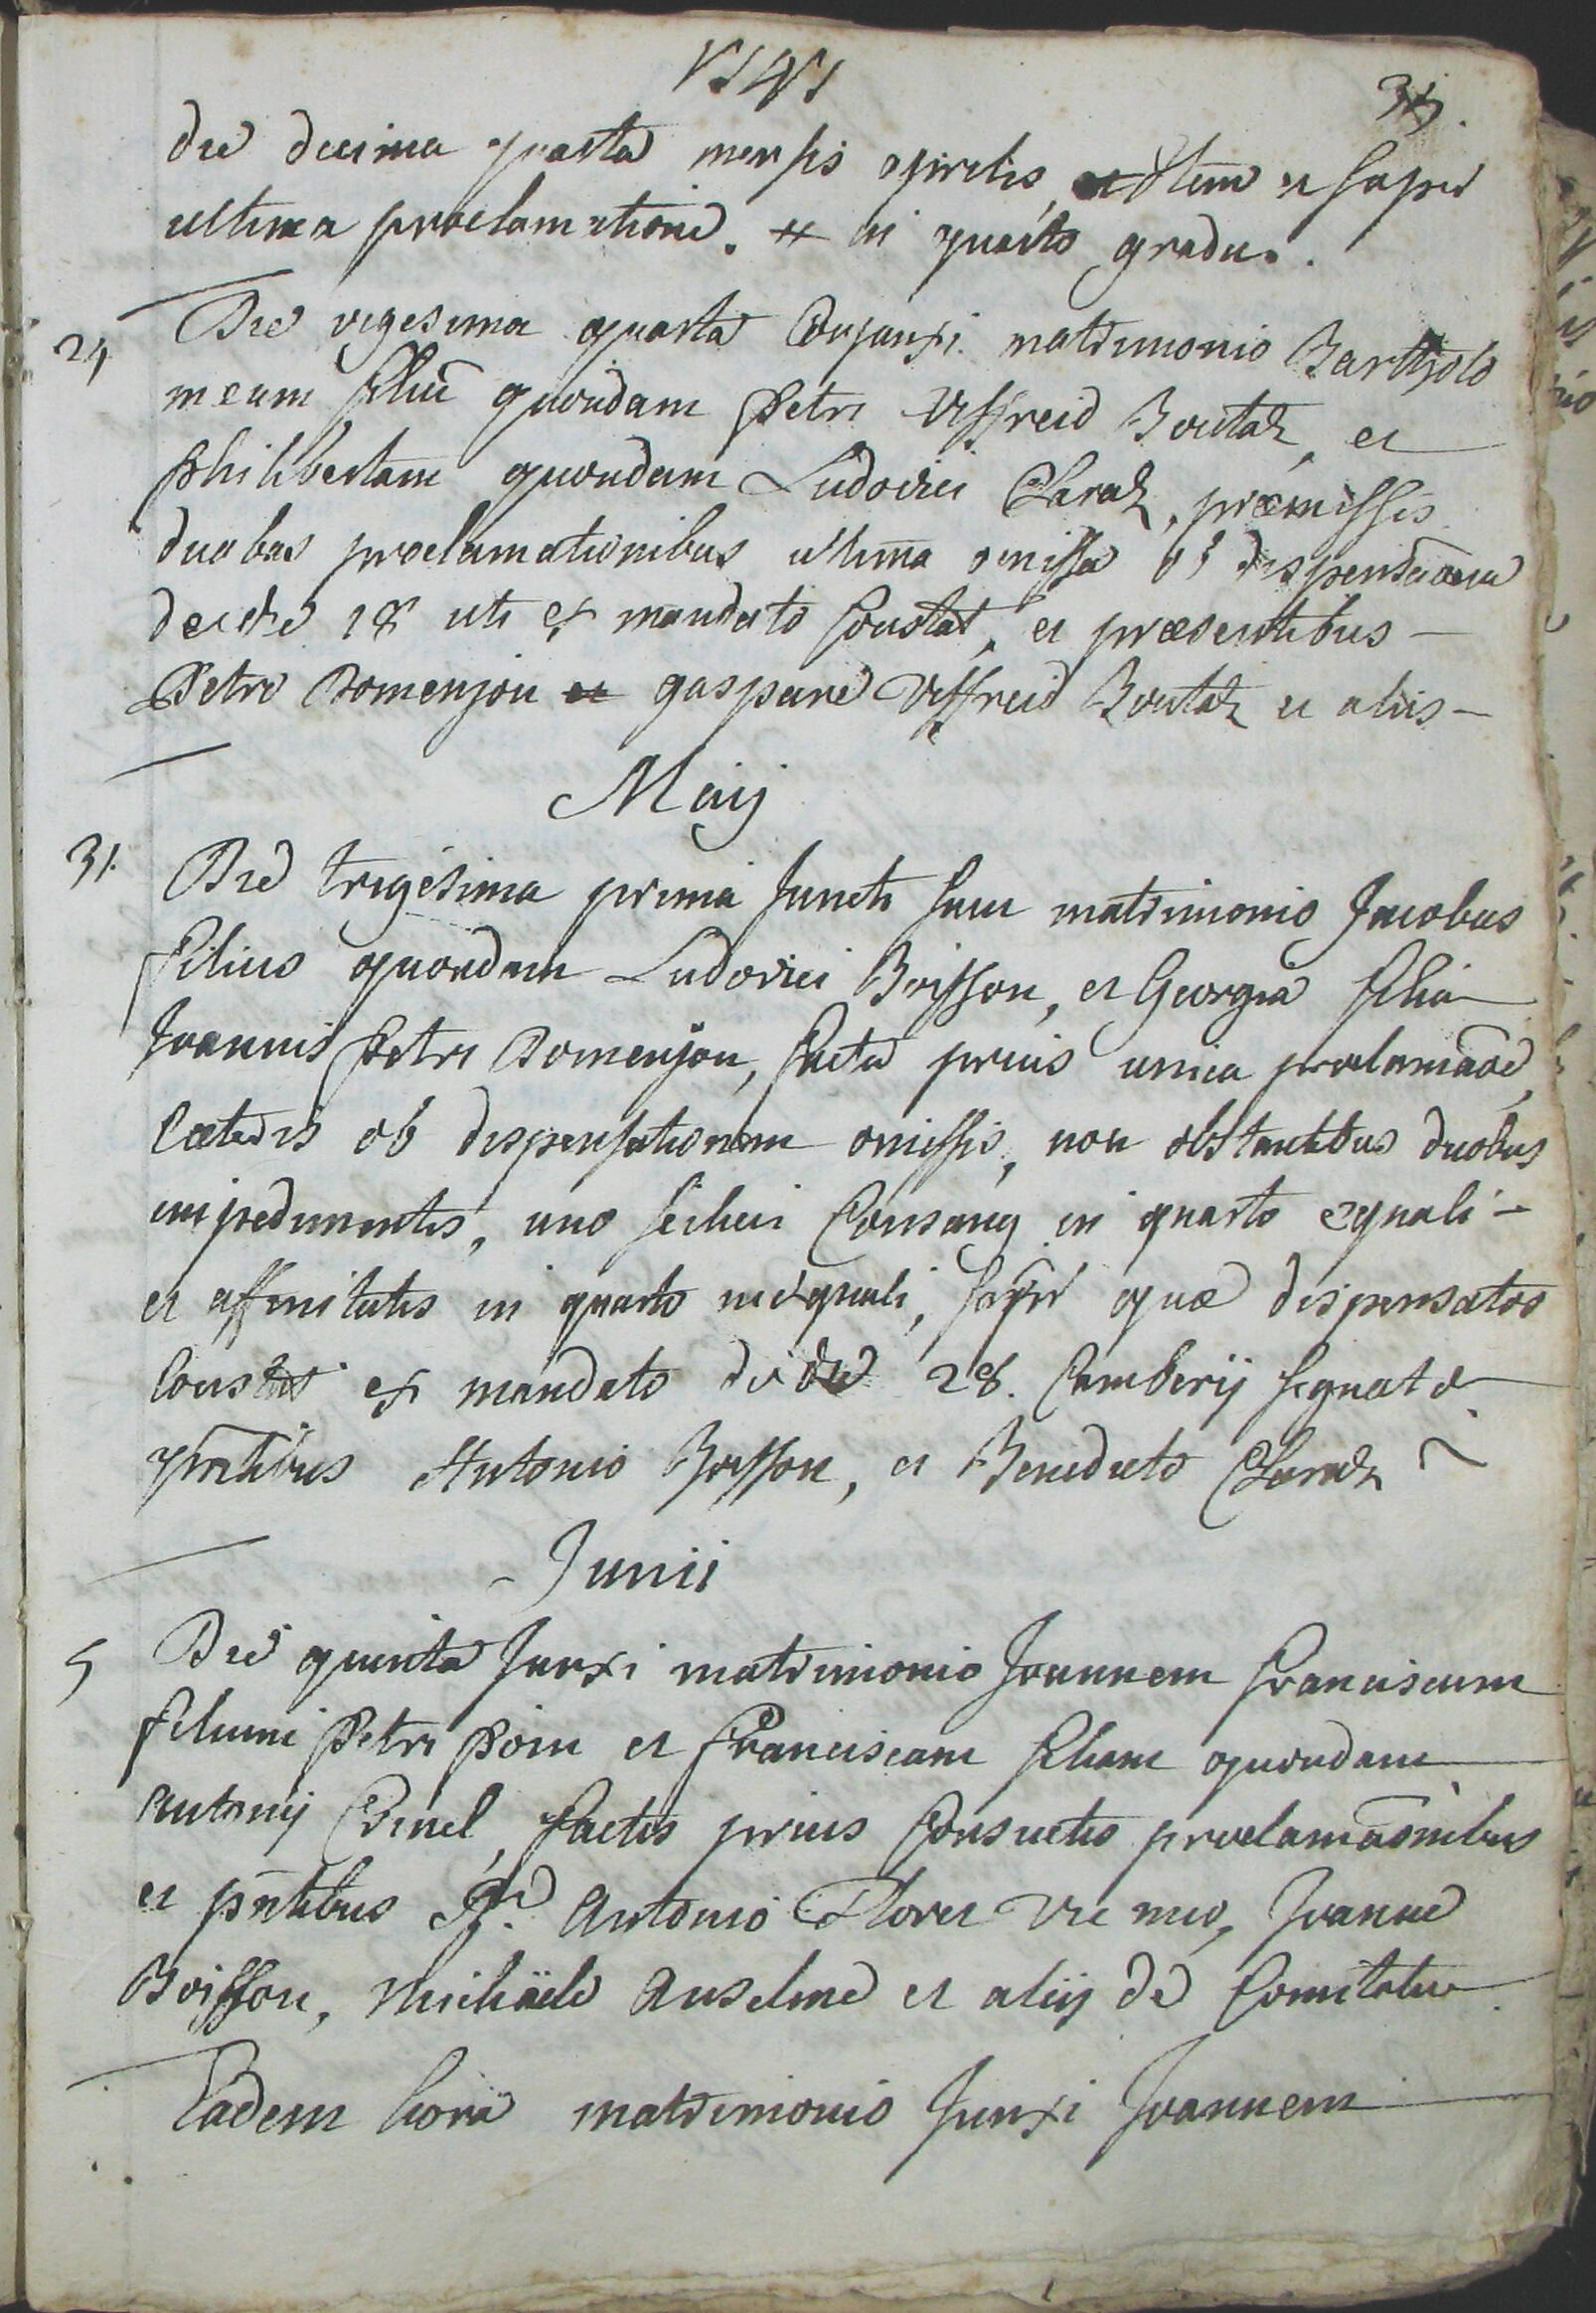 die decima quarta mensis aprilis, item et super
ultima proclamatione. in quarto gradu.
24 Die vigesima quarta Conjunxi matrimonio Bartholo
meum filiũ quondam Petri Viffreid Boutaz, et
philibertam quondam Ludovici Claraz, præmissis
duabus proclamationibus ultima omissa ob dispensãonem
de die 18 uti ex mandato Constat, et præsentibus
Petro Domenjon gaspare Viffreid Boutaz et aliis
Maij
31. Die trigesima prima Juncti sunt matrimonio Jacobus
filius quondam Ludovici Boisson, et Georgia filia
Joannis Petri Domenjon, facta prius unica proclamãoe,
Cæteris ob dispensationem omissis, non obstantibus duobus
impedimentis, uno scilicet Consang in quarto equali
et affinitatis in quarto inequali, super quæ dispensatos
Constat ex mandato de die 28. Camberij signato
pñtibus Antonio Boisson, et Benedicto Claraz
Junii
5 Die quinta Junxi matrimonio Joannem franciscum
filium Petri Poin et franciscam filiam quondam
antonij Crinel, factis prius Consuetis proclamãonibus
et pñtibus antonio Plovex Joanne
Boisson, Michäele Anselme et aliij de Comitatu
Eadem hora matrimonio Junxi Joannem